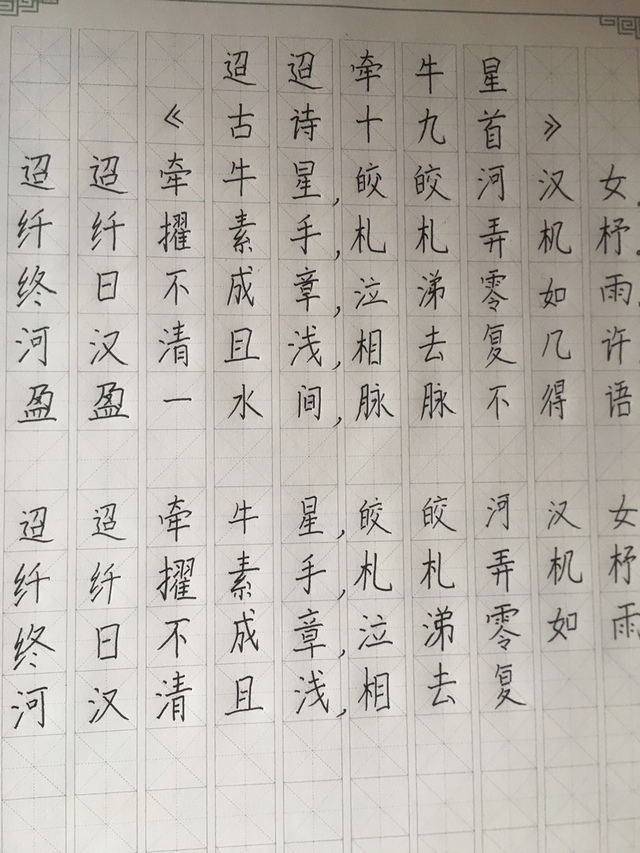 迢迢牵牛星
《古诗十九首》
迢迢牵牛星,皎皎河汉女.
纤纤擢素手,札札弄机杼.
终日不成章,泣涕零如雨.
河汉清且浅,相去复几许
盈盈一水间,脉脉不得语
迢迢牵牛星,皎皎河汉女
纤纤擢素手,札札弄机杼
终日不成章,泣涕零如雨
河汉清且浅,相去复